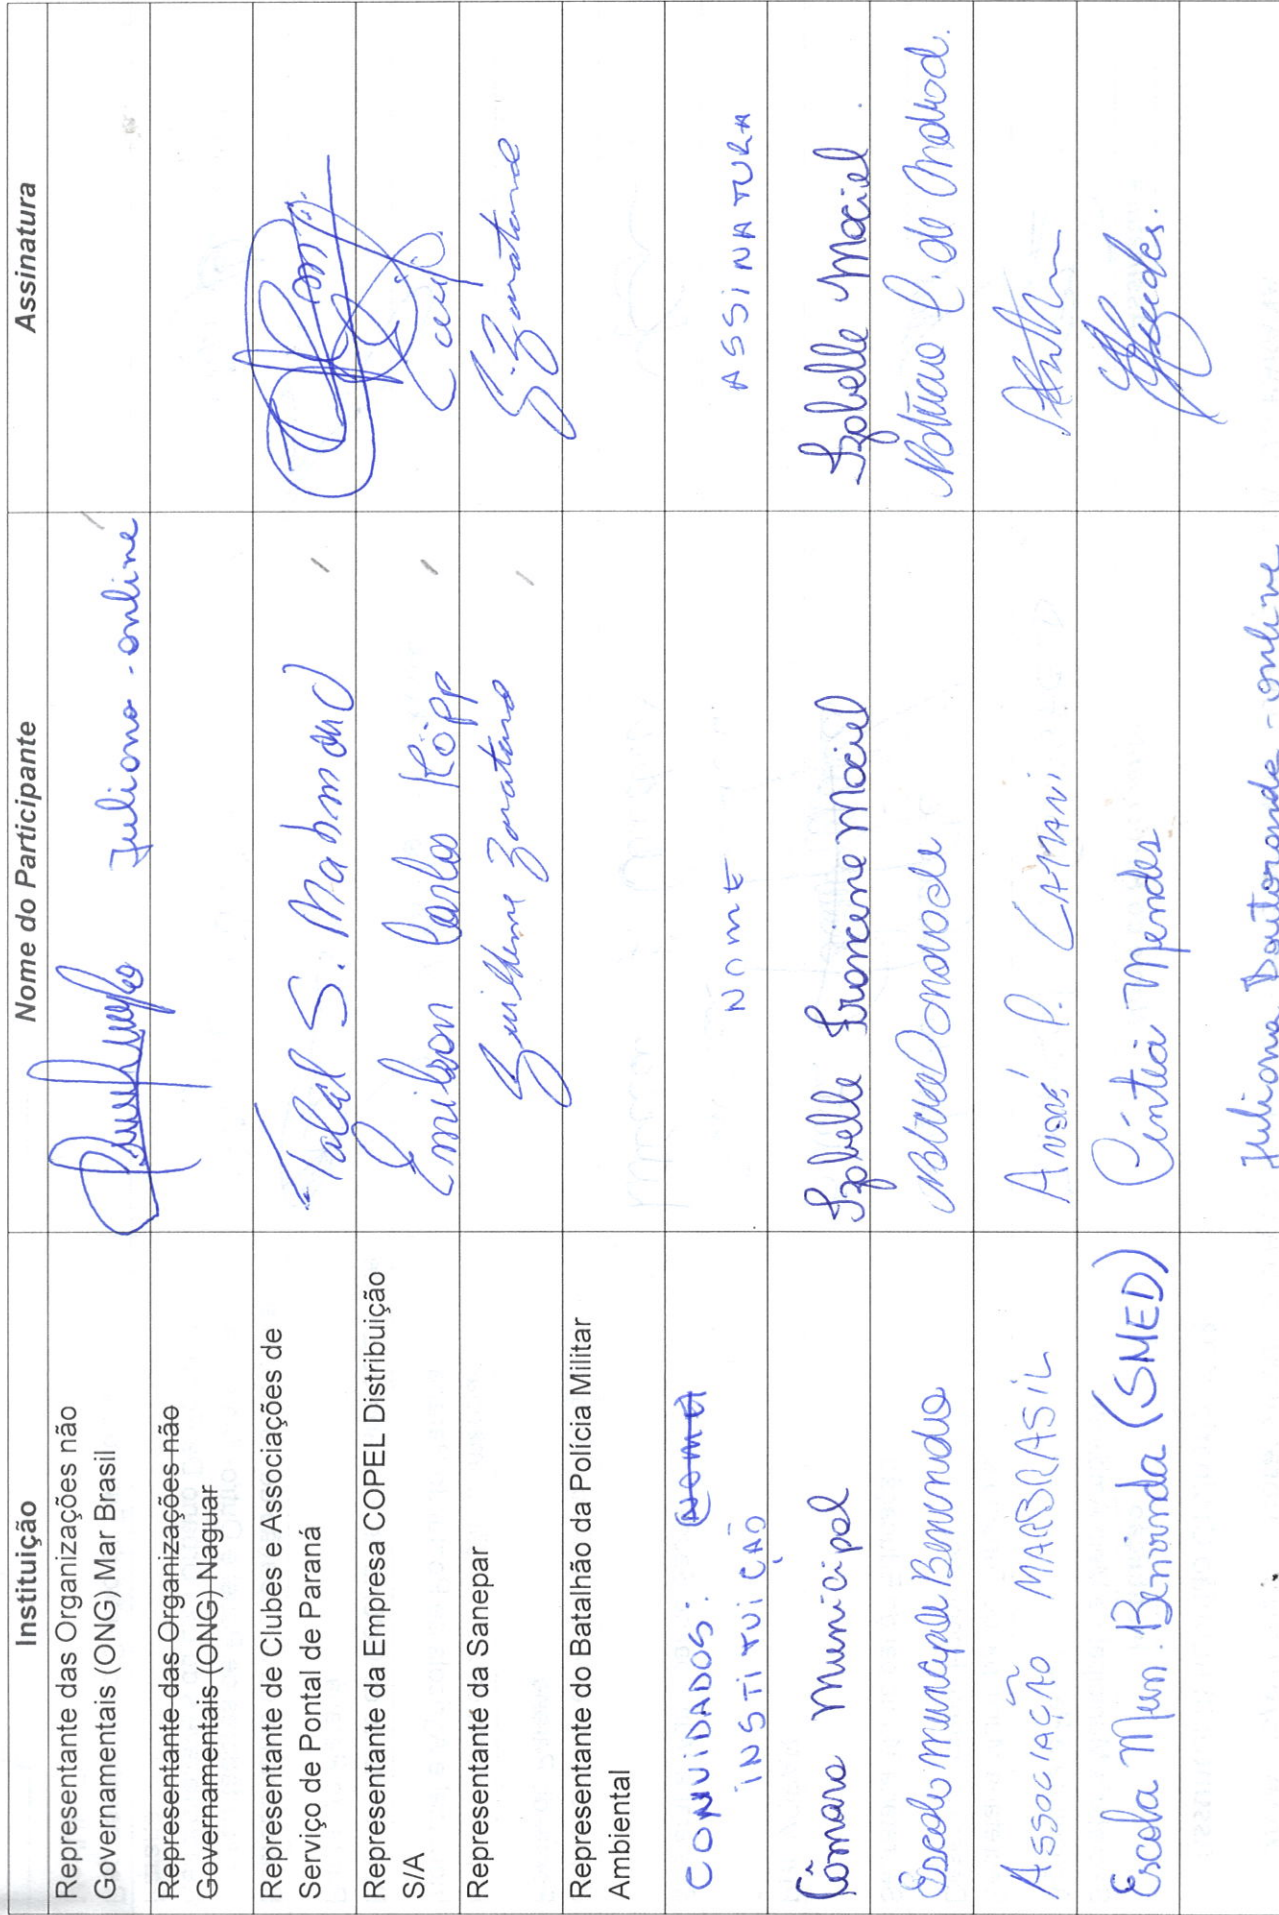 Instituição Nome do Participante Assinatura
Representante das Organizações não
Governamentais (ONG) Mar Brasil
Juliana - online
Representante das Organizações não
Governamentais (ONG) Naguar
Representante de Clubes e Associações de
Serviço de Pontal de Paraná
Talal S. Mahmoud
Representante da Empresa COPEL Distribuição
S/A
Emilson Carlos Köpp
Representante da Sanepar
Guilherme Zavatano
G. Zavatano
Representante do Batalhão da Polícia Militar
Ambiental
CONVIDADOS: NOME
INSTITUIÇÃO
NOME ASSINATURA
Câmara Municipal Izabelle Francine Maciel Izabelle Maciel.
Escola municipal Benvinda
ASSOCIAÇÃO MARBRASIL ANDRÉ P. CATTANI
Escola Mun. Benvinda (SMED) Cíntia Mendes
Juliana Doutoranda - online